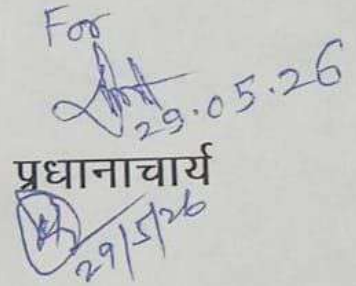 For
29.05.26
प्रधानाचार्य
29/5/26